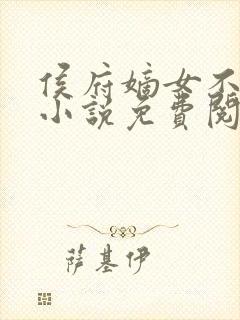 侯府嫡女不
小說免費閱
萨基伊